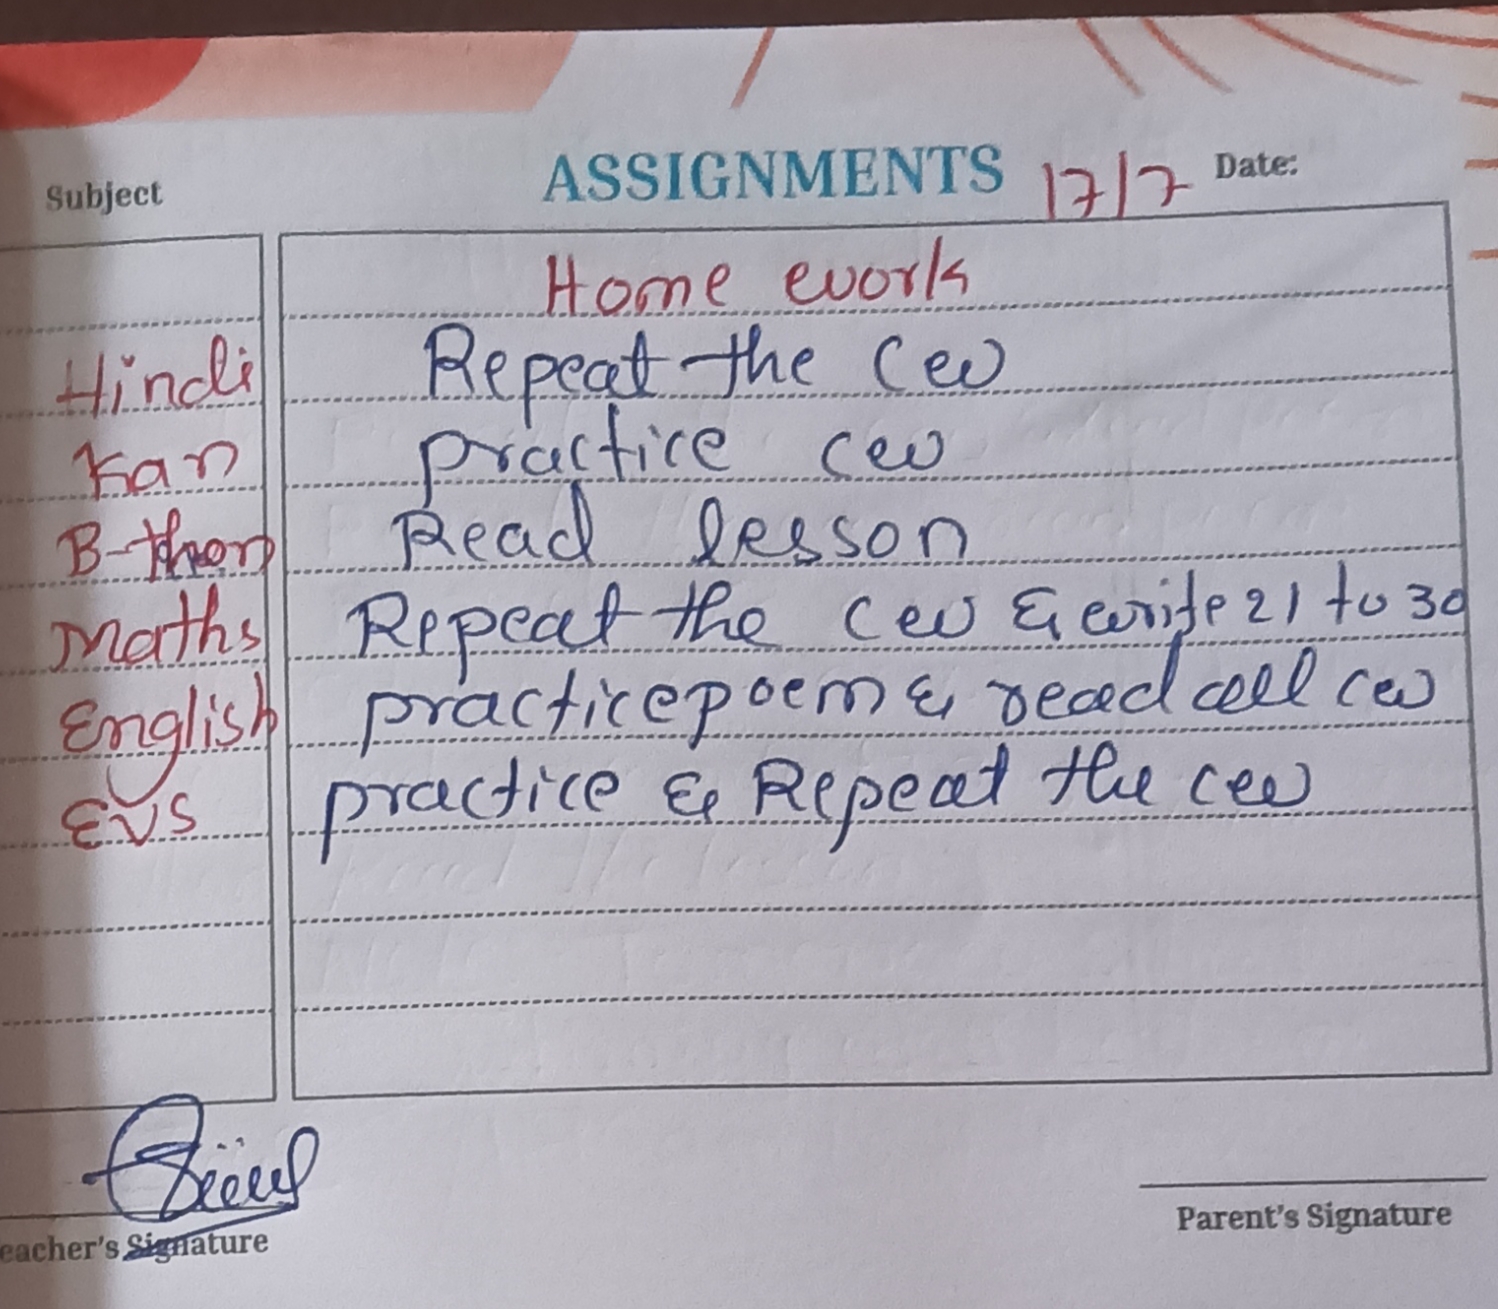 Subject ASSIGNMENTS 17/7 Date:
Home work
Hindi Repeat the cw
Kan practice cw
B-thon Read lesson
Maths Repeat the cw & write 21 to 30
English practice poem & read all cw
EVS practice & Repeat the cw
eacher's Signature
Parent's Signature